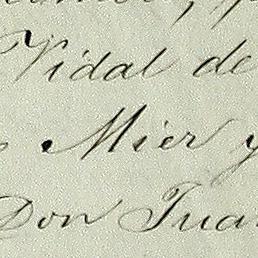 Vidal de
Mier y
Don Jua